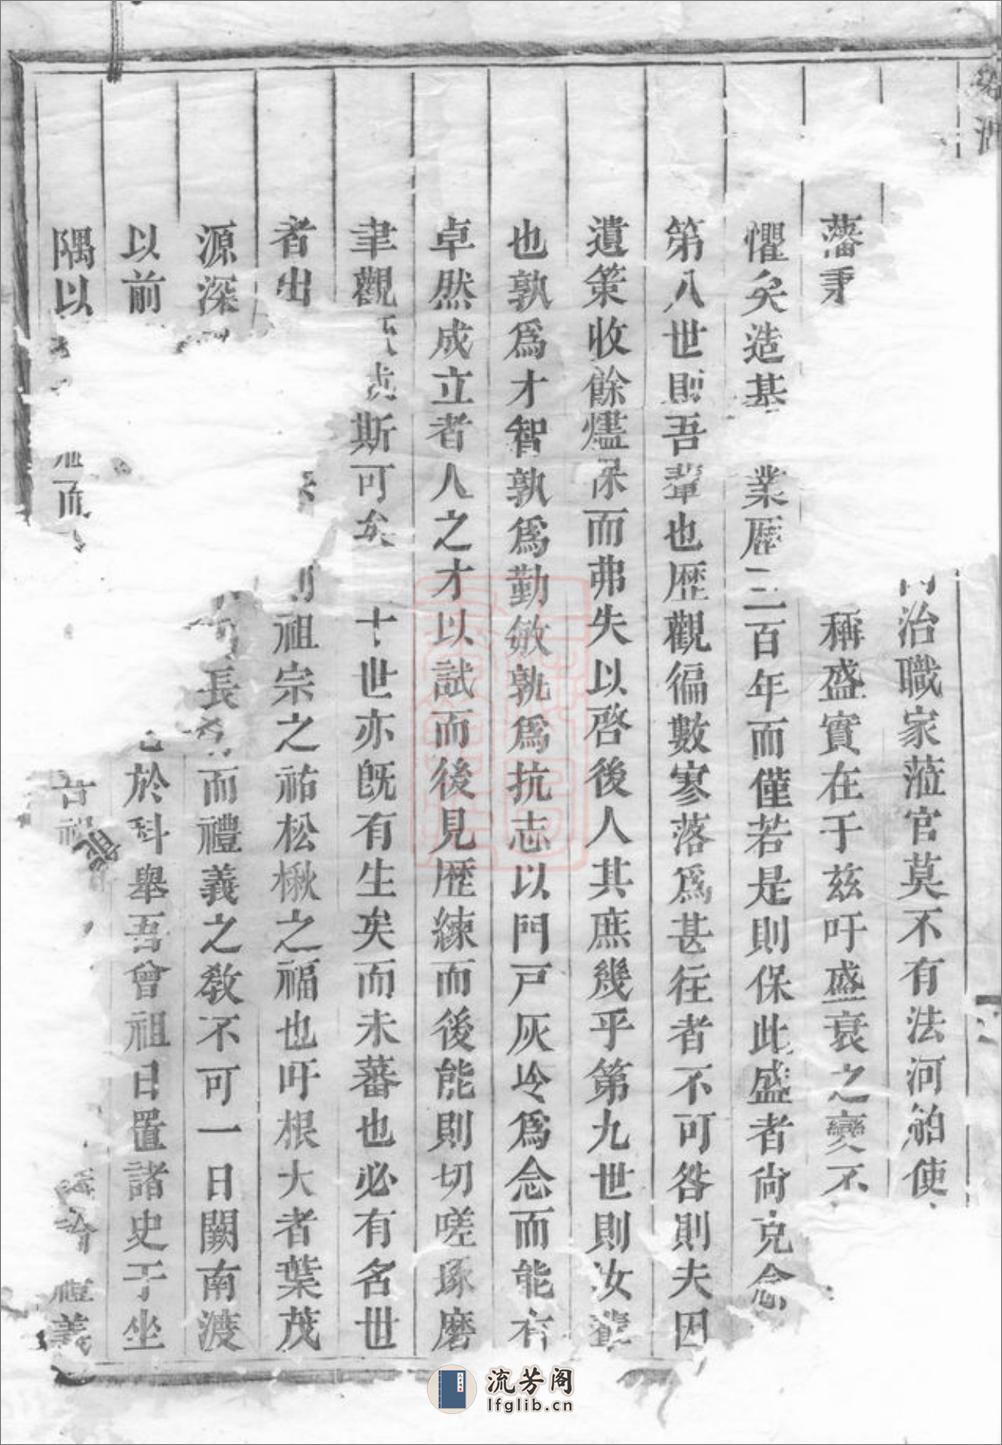 治職家蒞官莫不有法河舶使
藩秉稱盛實在于兹吁盛衰之變不
懼矣造基業歷二百年而僅若是則保此盛者尚克念
第八世則吾輩也歷觀徧數寥落爲甚往者不可咎則夫因
遺策收餘燼保而弗失以啓後人其庶幾乎第九世則汝輩
也孰爲才智孰爲勤敏孰爲抗志以門戸灰冷爲念而能有
卓然成立者人之才以試而後見歷練而後能則切嗟琢磨
聿觀斯可矣十世亦旣有生矣而未蕃也必有名世
者出祖宗之祐松楸之福也吁根大者葉茂
源深長而禮義之敎不可一日闕南渡
以前於科舉吾曾祖日置諸史于坐
隅以而禮義
流芳阁
lfglib.cn